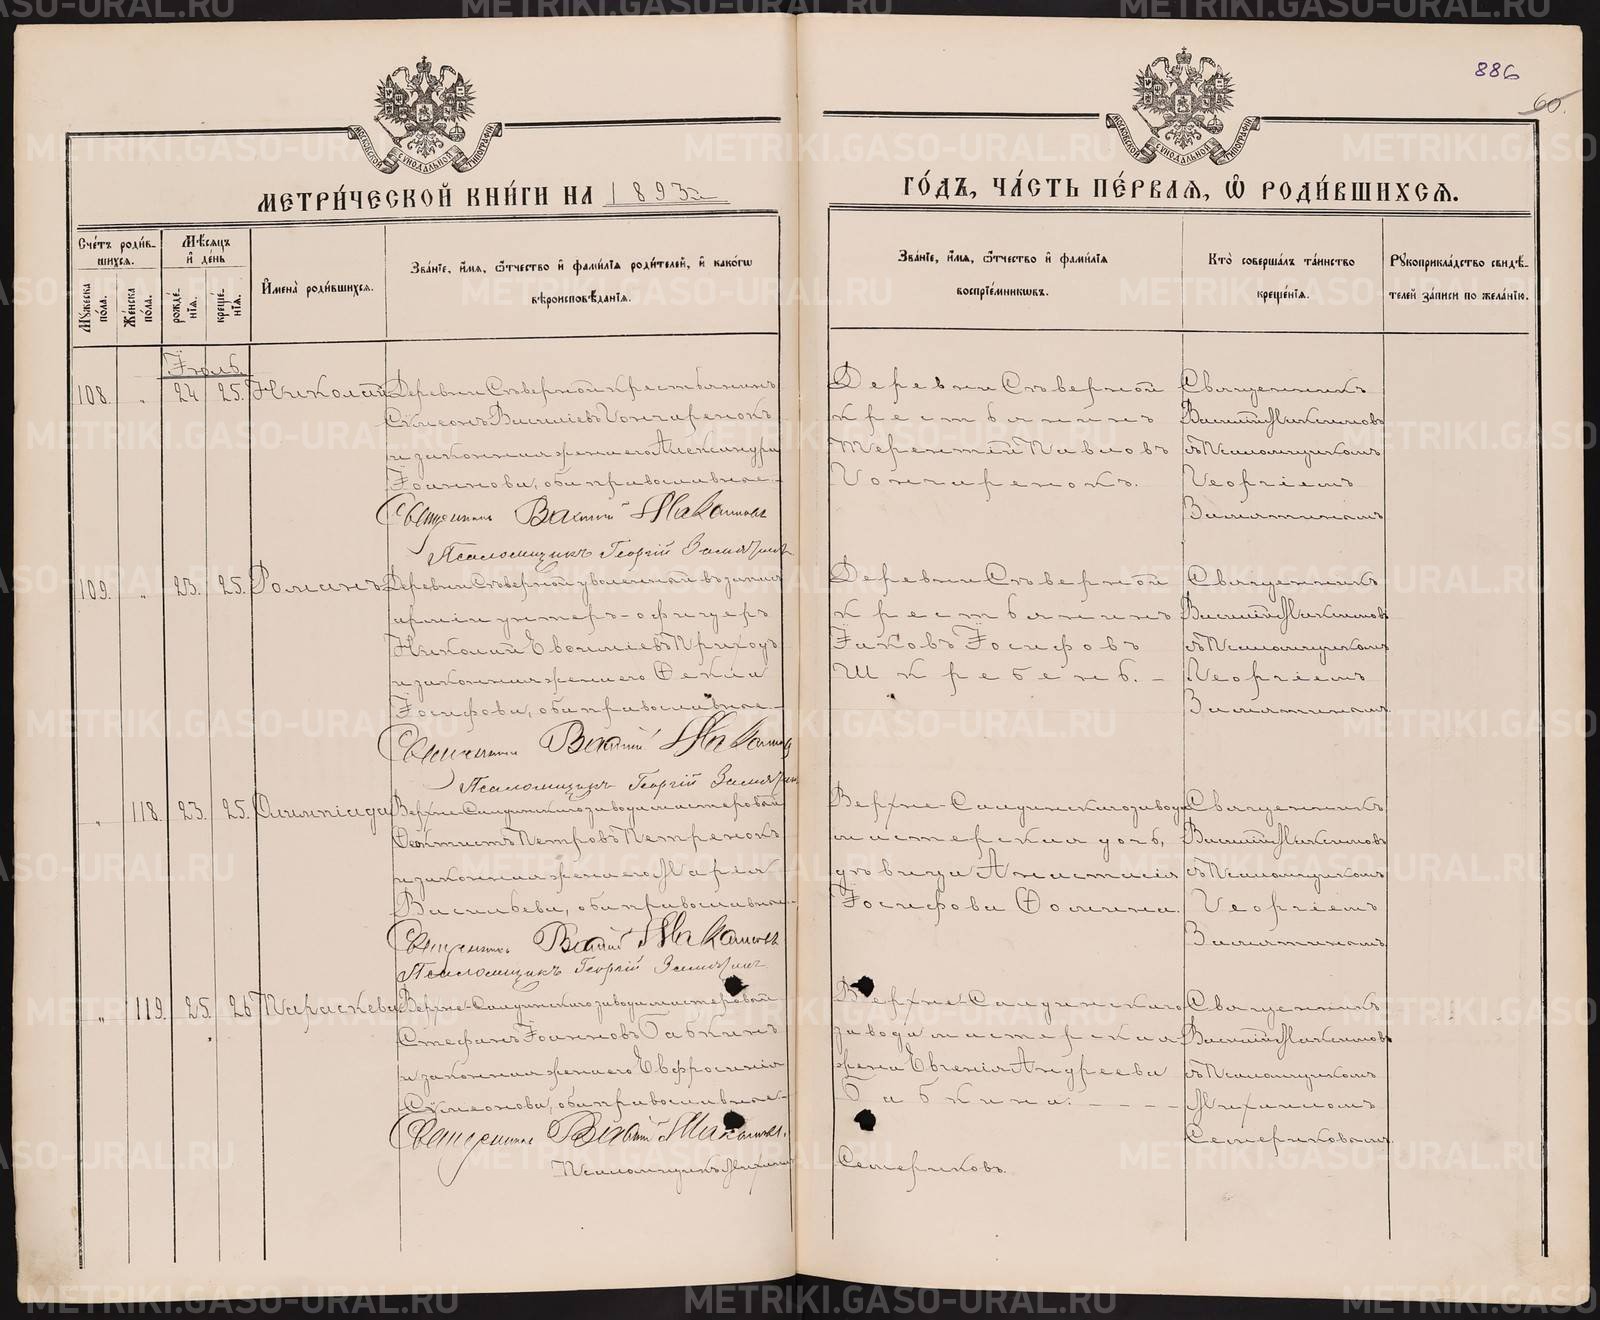 886
60.
МОСКОВСКОЙ СѴНОДАЛЬНОЙ ТИПОГРАФІИ
МОСКОВСКОЙ СѴНОДАЛЬНОЙ ТИПОГРАФІИ
МЕТРИ́ЧЕСКОЙ КНИ́ГИ НА 1893г.
ГО́ДЪ, ЧА́СТЬ ПЕ́РВАѦ, Ѡ҆ РОДИ́ВШИХСѦ.
Счéтъ роди́в-
шихсѧ.
Мꙋ́жеска по́ла.
Же́нска по́ла.
Мѣ́сѧцъ и҆ де́нь
рожде́-
нїѧ.
креще́-
нїѧ.
И҆мена̀ роди́вшихсѧ.
Зва́нїе, и҆́мѧ, ѻ҆́тчество и҆ фами́лїѧ роди́телей, и҆ како́гѡ
вѣроисповѣ́данїѧ.
Зва́нїе, и҆́мѧ, ѻ҆́тчество и҆ фами́лїѧ
воспрїе́мникѡвъ.
Кто̀ соверша́лъ та́инство
креще́нїѧ.
Рꙋкоприкла́дство свидѣ́-
телей за́писи по жела́нїю.
Іюль.
108. " 24 25. Николай
Деревни Сѣверной крестьянинъ
Сѵмеонъ Василіевъ Гончаренокъ
и законная жена его Александра
Іоаннова, оба православные.-
Священникъ Василій Макси́мовъ
Псаломщикъ Георгій Замятинъ
Деревни Сѣверной
крестьянинъ
Терентій Павловъ
Гончаренокъ.
Священникъ
Василій Максимовъ
съ Псаломщикомъ
Георгіемъ
Замятинымъ
109. " 23. 25. Романъ
Деревни Сѣверной уволенный въ запасъ
арміи унтеръ-офицеръ
Николай Евѳиміевъ Приходъ
и законная жена его Ѳекла
Іосифова, оба православные.-
Священникъ Василій Максимовъ
Псаломщикъ Георгій Замятинъ
Деревни Сѣверной
крестьянинъ
Іаковъ Іосифовъ
Шкребень. -
Священникъ
Василій Максимовъ
съ Псаломщикомъ
Георгіемъ
Замятинымъ
" 118. 23. 25. Олимпіада
Верхне-Салдинскаго завода мастеровой
Ѳеоктистъ Петровъ Петренокъ
и законная жена его Марія
Васильева, оба православные.-
Священникъ Василій Максимовъ
Псаломщикъ Георгій Замятинъ
Верхне-Салдинскаго завода
мастерская дочь,
дѣвица Анастасія
Іосифова Ѳомина.
Священникъ
Василій Максимовъ
съ Псаломщикомъ
Георгіемъ
Замятинымъ
" 119. 25. 26 Параскева
Верхне-Салдинскаго завода мастеровой
Стефанъ Іоанновъ Бабкинъ
и законная жена его Евфросинія
Сѵмеонова, оба православные-
Священникъ Василій Максимовъ.
Псаломщикъ Михаилъ Семериковъ
Верхне-Салдинскаго
завода мастерская
жена Евгенія Андреева
Бабкина. - - - -
Священникъ
Василій Максимовъ
съ Псаломщикомъ
Михаиломъ
Семериковымъ
METRIKI.GASO-URAL.RU